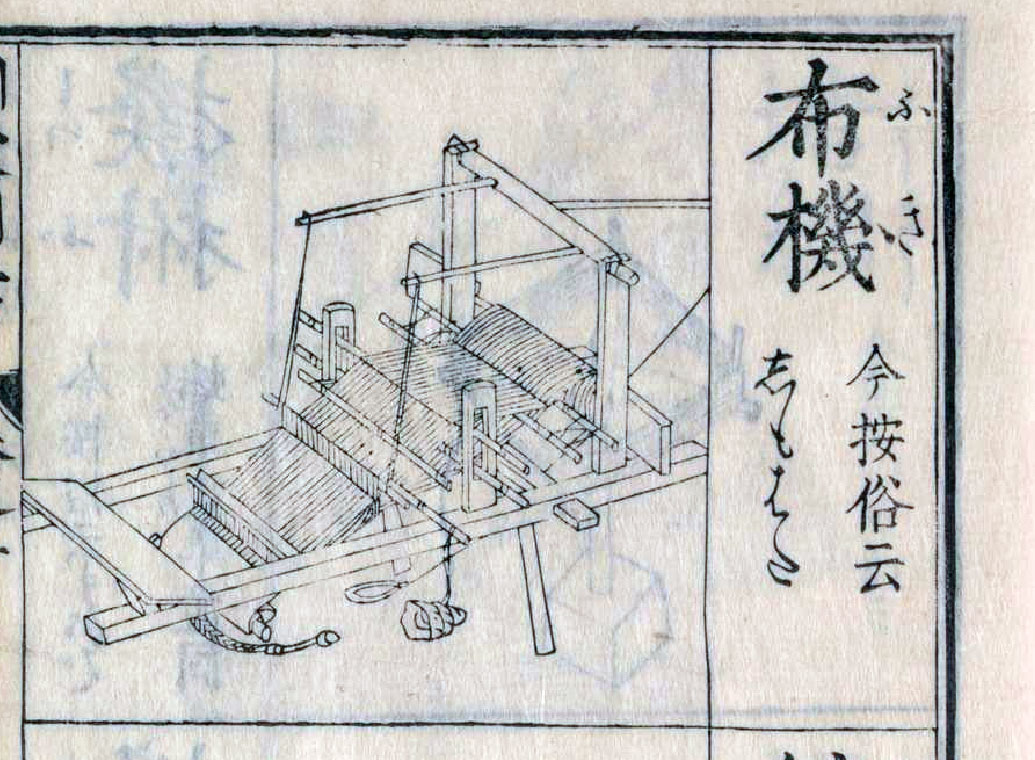 布機
ふき
今按俗云
しもはた